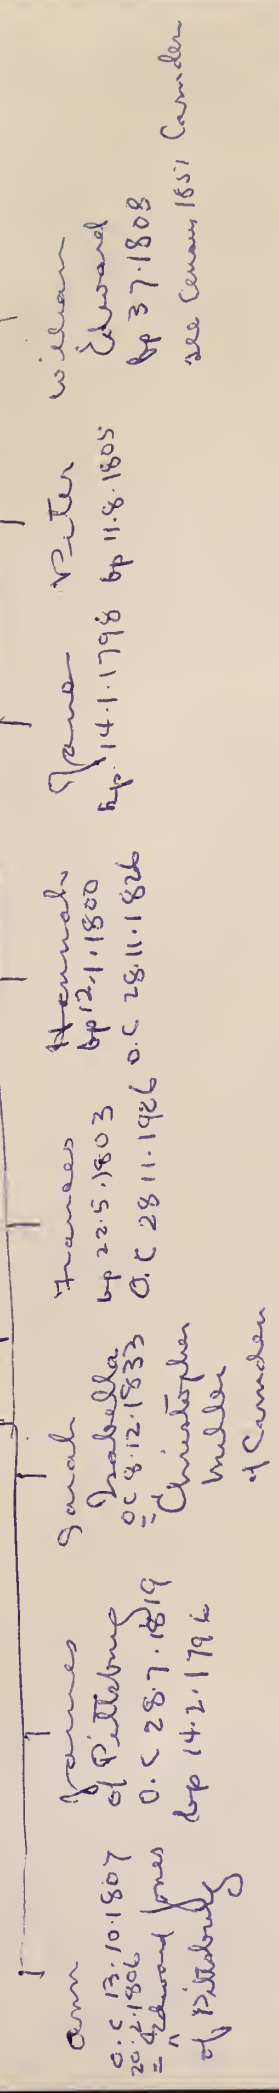 Ann
O.C 13.10.1807
20.2.1806
= Edward Jones
of Pittsburg
James
of Pittsburg
O.C 28.7.1819
bp 14.2.179
Sarah
Isabella
OC 8.12.1833
= Christopher
Miller
of Camden
Frances
bp 22.5.1803
O.C 28 11.1926
Hannah
bp 12.1.1800
O.C 28.11.1826
Jane
bp. 14.1.1798
Peter
bp 11.8.1805
William
Edward
bp 3 7.1808
see Census 1851 Camden